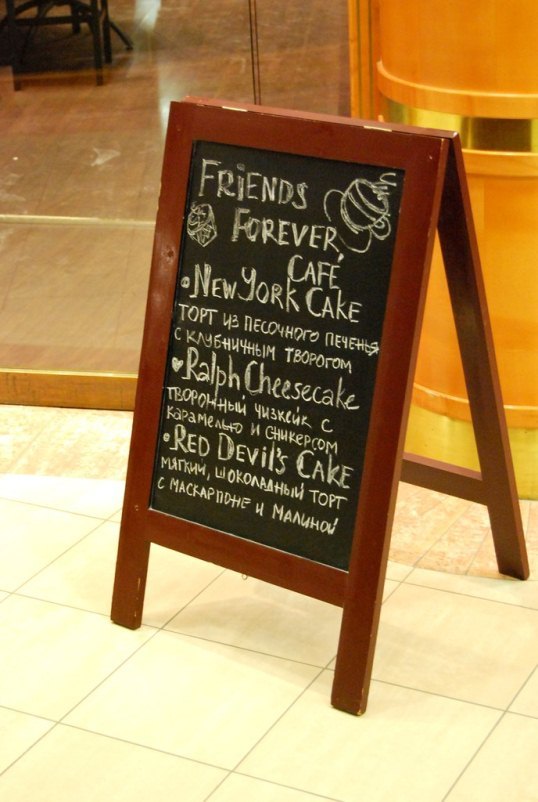 FRIENDS
FOREVER,
CAFÉ
• NEW YORK CAKE
ТОРТ ИЗ ПЕСОЧНОГО ПЕЧЕНЬЯ
С КЛУБНИЧНЫМ ТВОРОГОМ
Ralph Cheesecake
ТВОРОЖНЫЙ ЧИЗКЕЙК С
КАРАМЕЛЬЮ И СНИКЕРСОМ
• RED DEVIL'S CAKE
МЯГКИЙ, ШОКОЛАДНЫЙ ТОРТ
С МАСКАРПОНЕ И МАЛИНОЙ